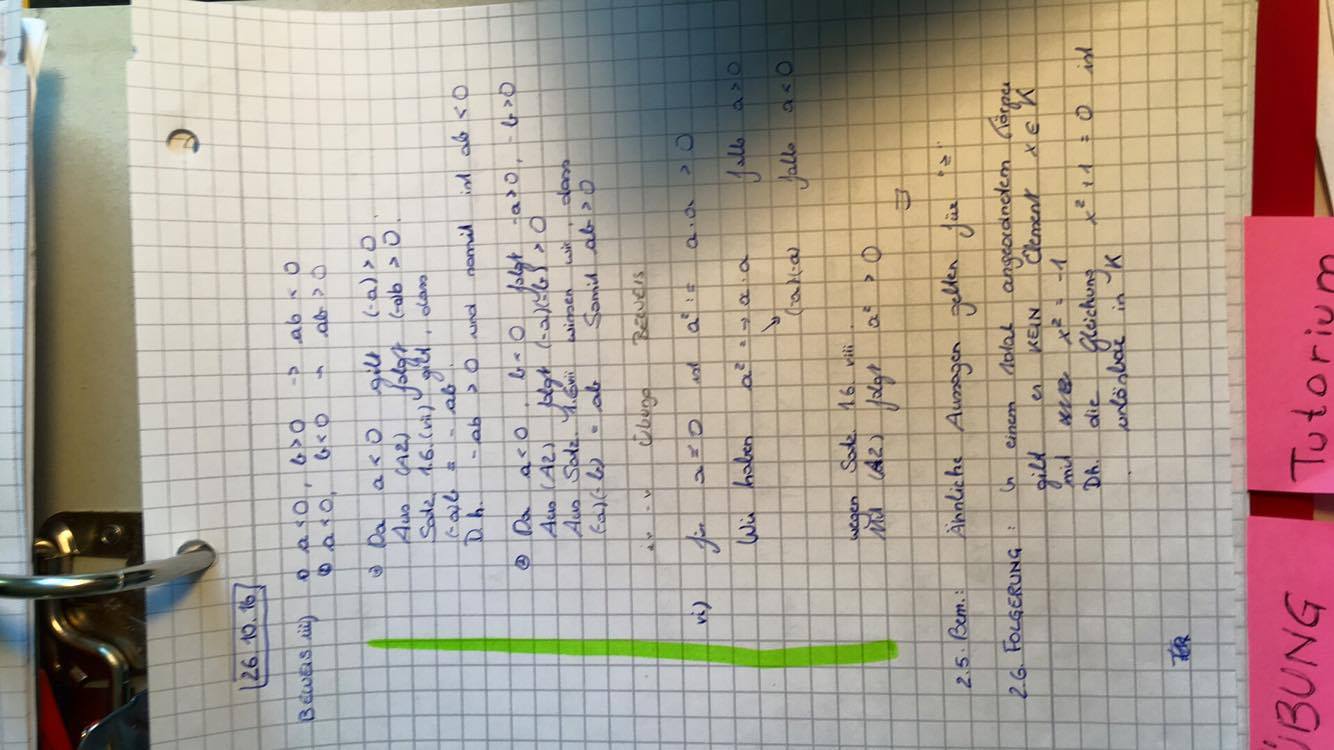 26.10.16
BEWEIS iii) ① a<0, b>0 → ab<0
② a<0, b<0 " ab>0
① Da a<0 gilt (-a)>0.
Aus (A2) folgt (-ab>0.
Satz 1.6.(vii) gilt, dass
(-a)b = -ab.
D.h. -ab>0 und somit ist ab<0
② Da a<0, b<0 folgt -a>0, -b>0
Aus (A2) folgt (-a)(-b)>0
Aus Satz 1.6vii wissen wir, dass
(-a)(-b) = ab Somit ab>0
iv - v Übung BEWEIS
vi) für a≠0 ist a² := a·a > 0
Wir haben a² = → a·a falls a>0
↘ (-a)(-a) falls a<0
wegen Satz 1.6 viii.
Mit (A2) folgt a²>0
2.5. Bem.: Ähnliche Aussagen gelten für "≥"
2.6. FOLGERUNG: in einem total angeordnetem Körper
gibt es KEIN Element x∈K
mit x² = -1
Dh. die Gleichung x²+1=0 ist
unlösbar in K
Tutorium
ÜBUNG